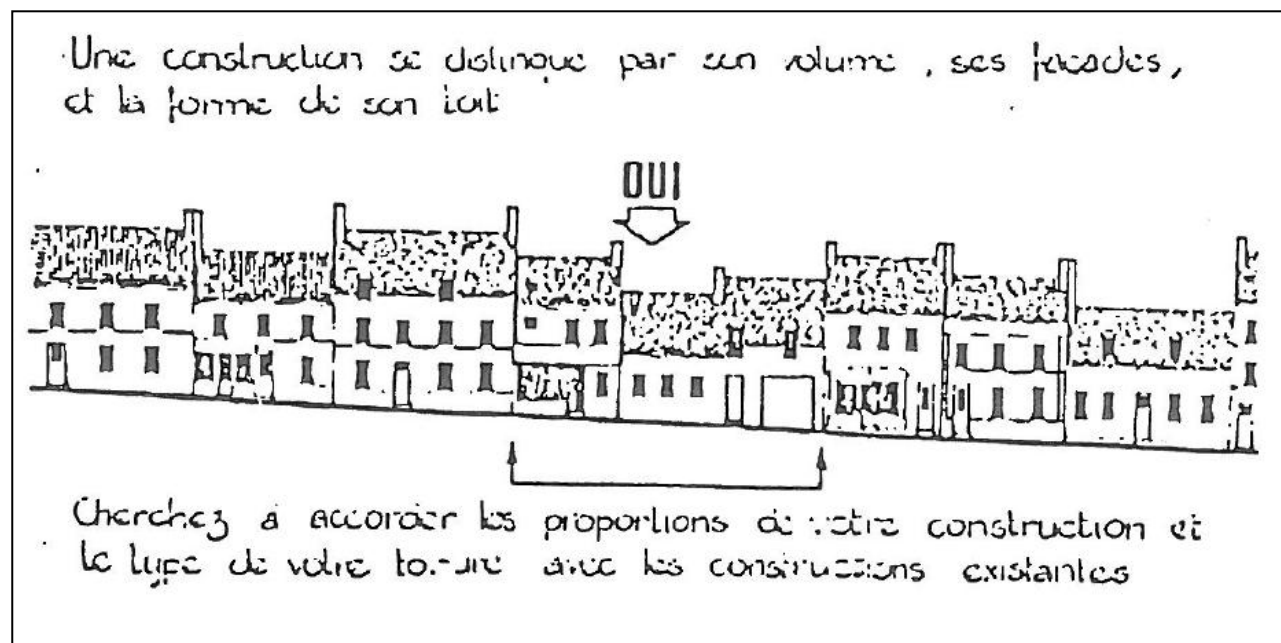 Une construction se distingue par son volume, ses façades,
et la forme de son toit
OUI
Cherchez à accorder les proportions de votre construction et
le type de votre toiture avec les constructions existantes